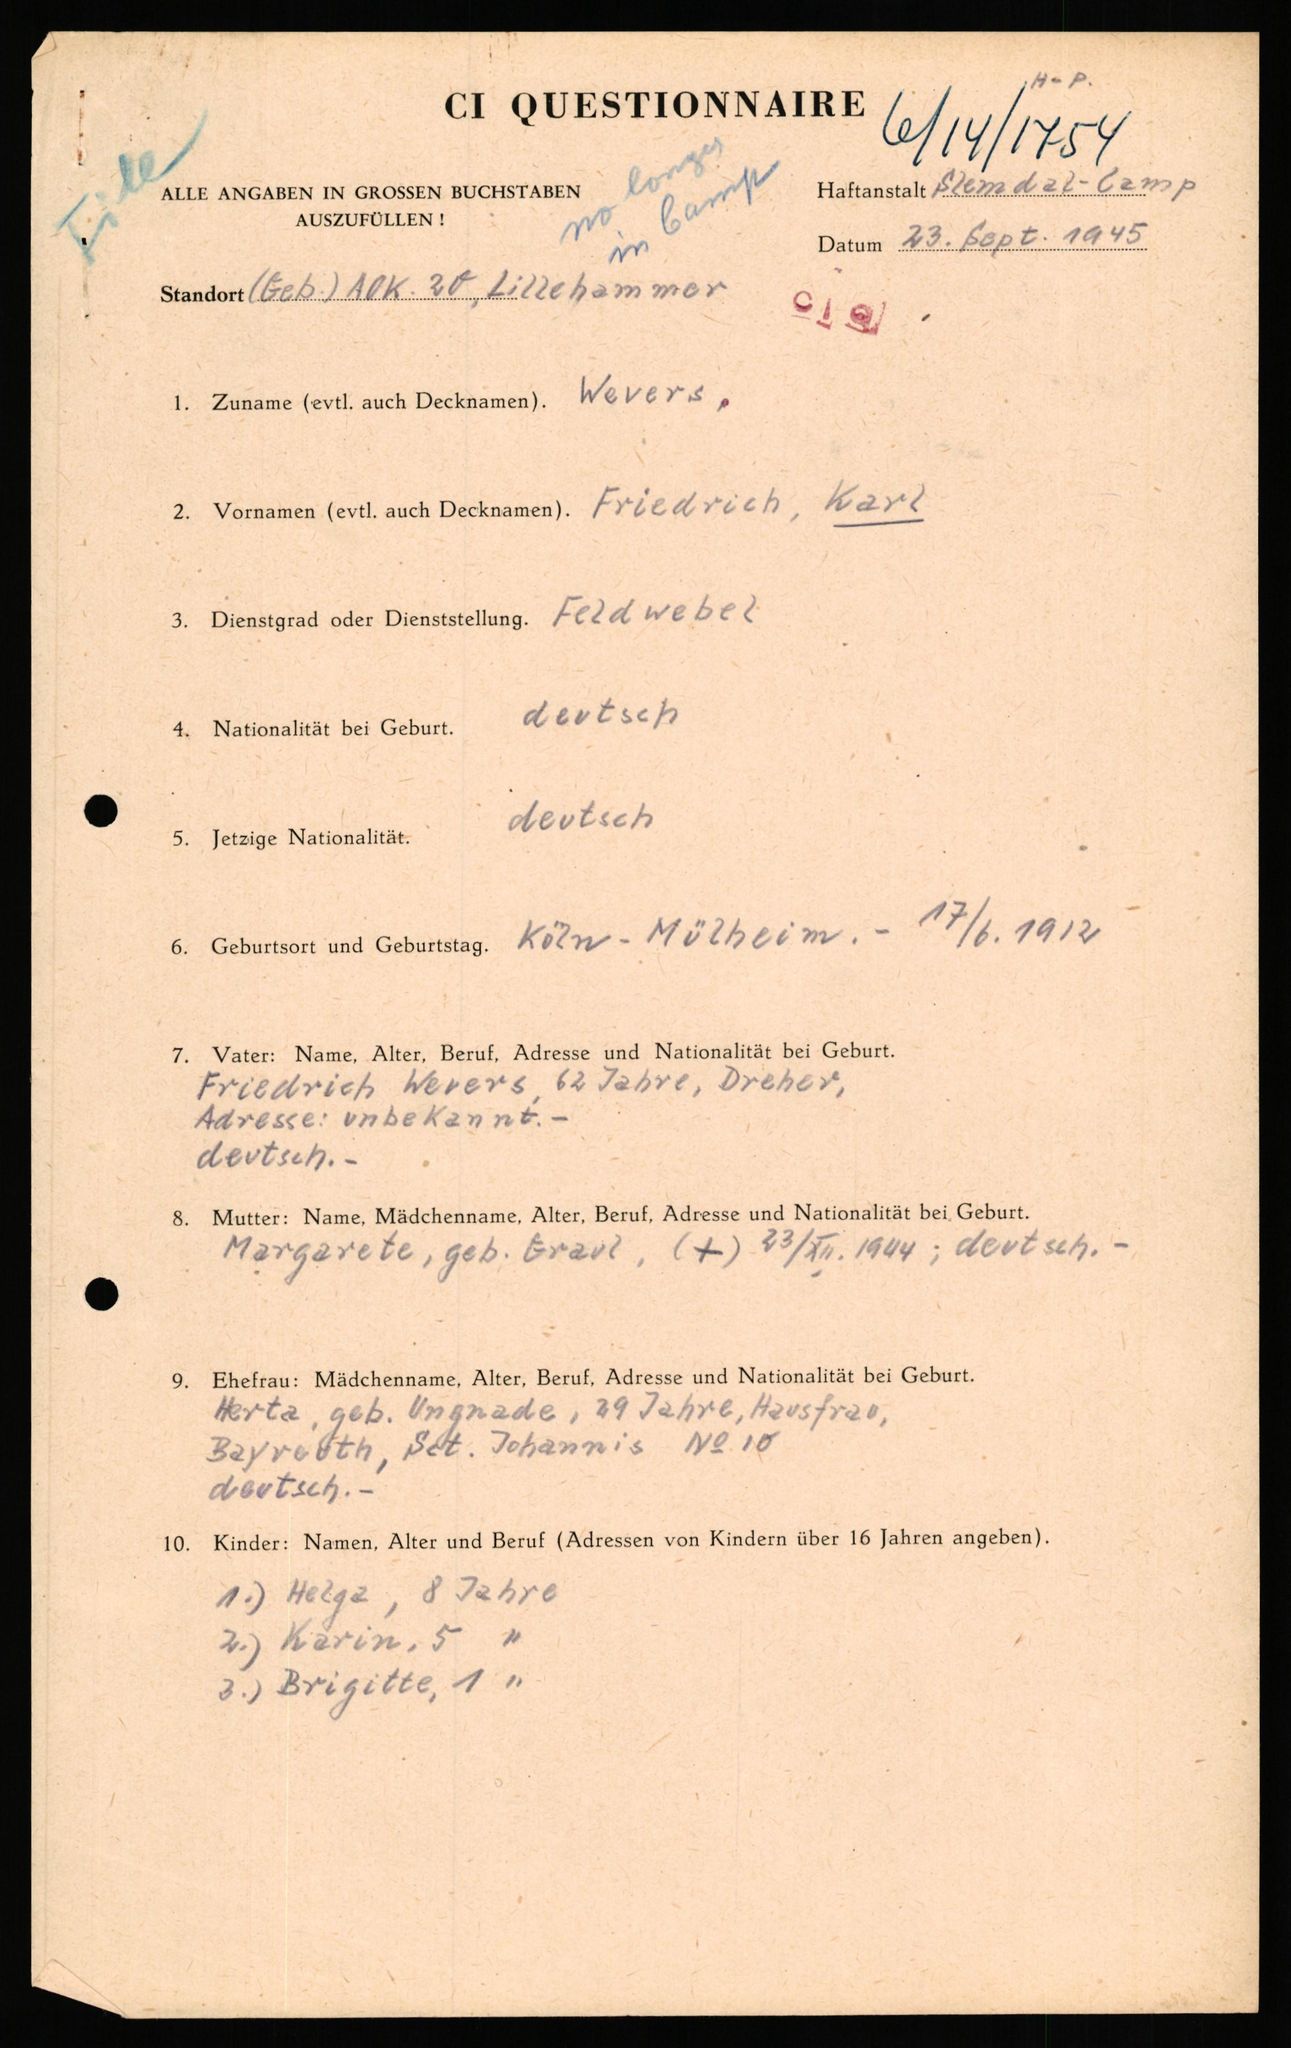 H-P.
CI QUESTIONNAIRE
6/14/1754
File
no longer
in Camp
ALLE ANGABEN IN GROSSEN BUCHSTABEN
AUSZUFÜLLEN!
Haftanstalt Slemdal-Camp
Datum 23. Sept. 1945
Standort (Geb.) AOK. 20, Lillehammer
1. Zuname (evtl. auch Decknamen). Wevers,
2. Vornamen (evtl. auch Decknamen). Friedrich, Karl
3. Dienstgrad oder Dienststellung. Feldwebel
4. Nationalität bei Geburt. deutsch
5. Jetzige Nationalität. deutsch
6. Geburtsort und Geburtstag. Köln-Mülheim. - 17/6. 1912
7. Vater: Name, Alter, Beruf, Adresse und Nationalität bei Geburt.
Friedrich Wevers, 62 Jahre, Dreher,
Adresse: unbekannt. -
deutsch. -
8. Mutter: Name, Mädchenname, Alter, Beruf, Adresse und Nationalität bei Geburt.
Margarete, geb. Graul, (+) 23/XII. 1944; deutsch. -
9. Ehefrau: Mädchenname, Alter, Beruf, Adresse und Nationalität bei Geburt.
Herta, geb. Ungnade, 29 Jahre, Hausfrau,
Bayreuth, Sct. Johannis No 10
deutsch. -
10. Kinder: Namen, Alter und Beruf (Adressen von Kindern über 16 Jahren angeben).
1.) Helga, 8 Jahre
2.) Karin, 5 "
3.) Brigitte, 1 "